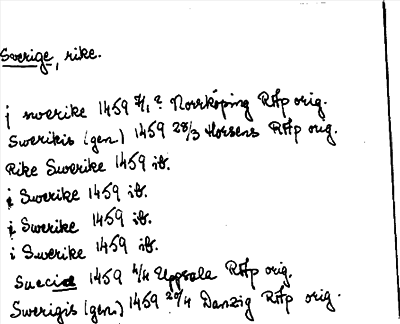 Sverige, rike.
j swerike 1459 7/1? Norrköping RAp orig.
Swerikis (gen.) 1459 28/3 Horsens RAp orig.
Rike Swerike 1459 ib.
i Swerike 1459 ib.
j Swerike 1459 ib.
i Swerike 1459 ib.
Suecia 1459 4/4 Uppsala RAp orig.
Swerigis (gen.) 1459 20/4 Danzig RAp orig.